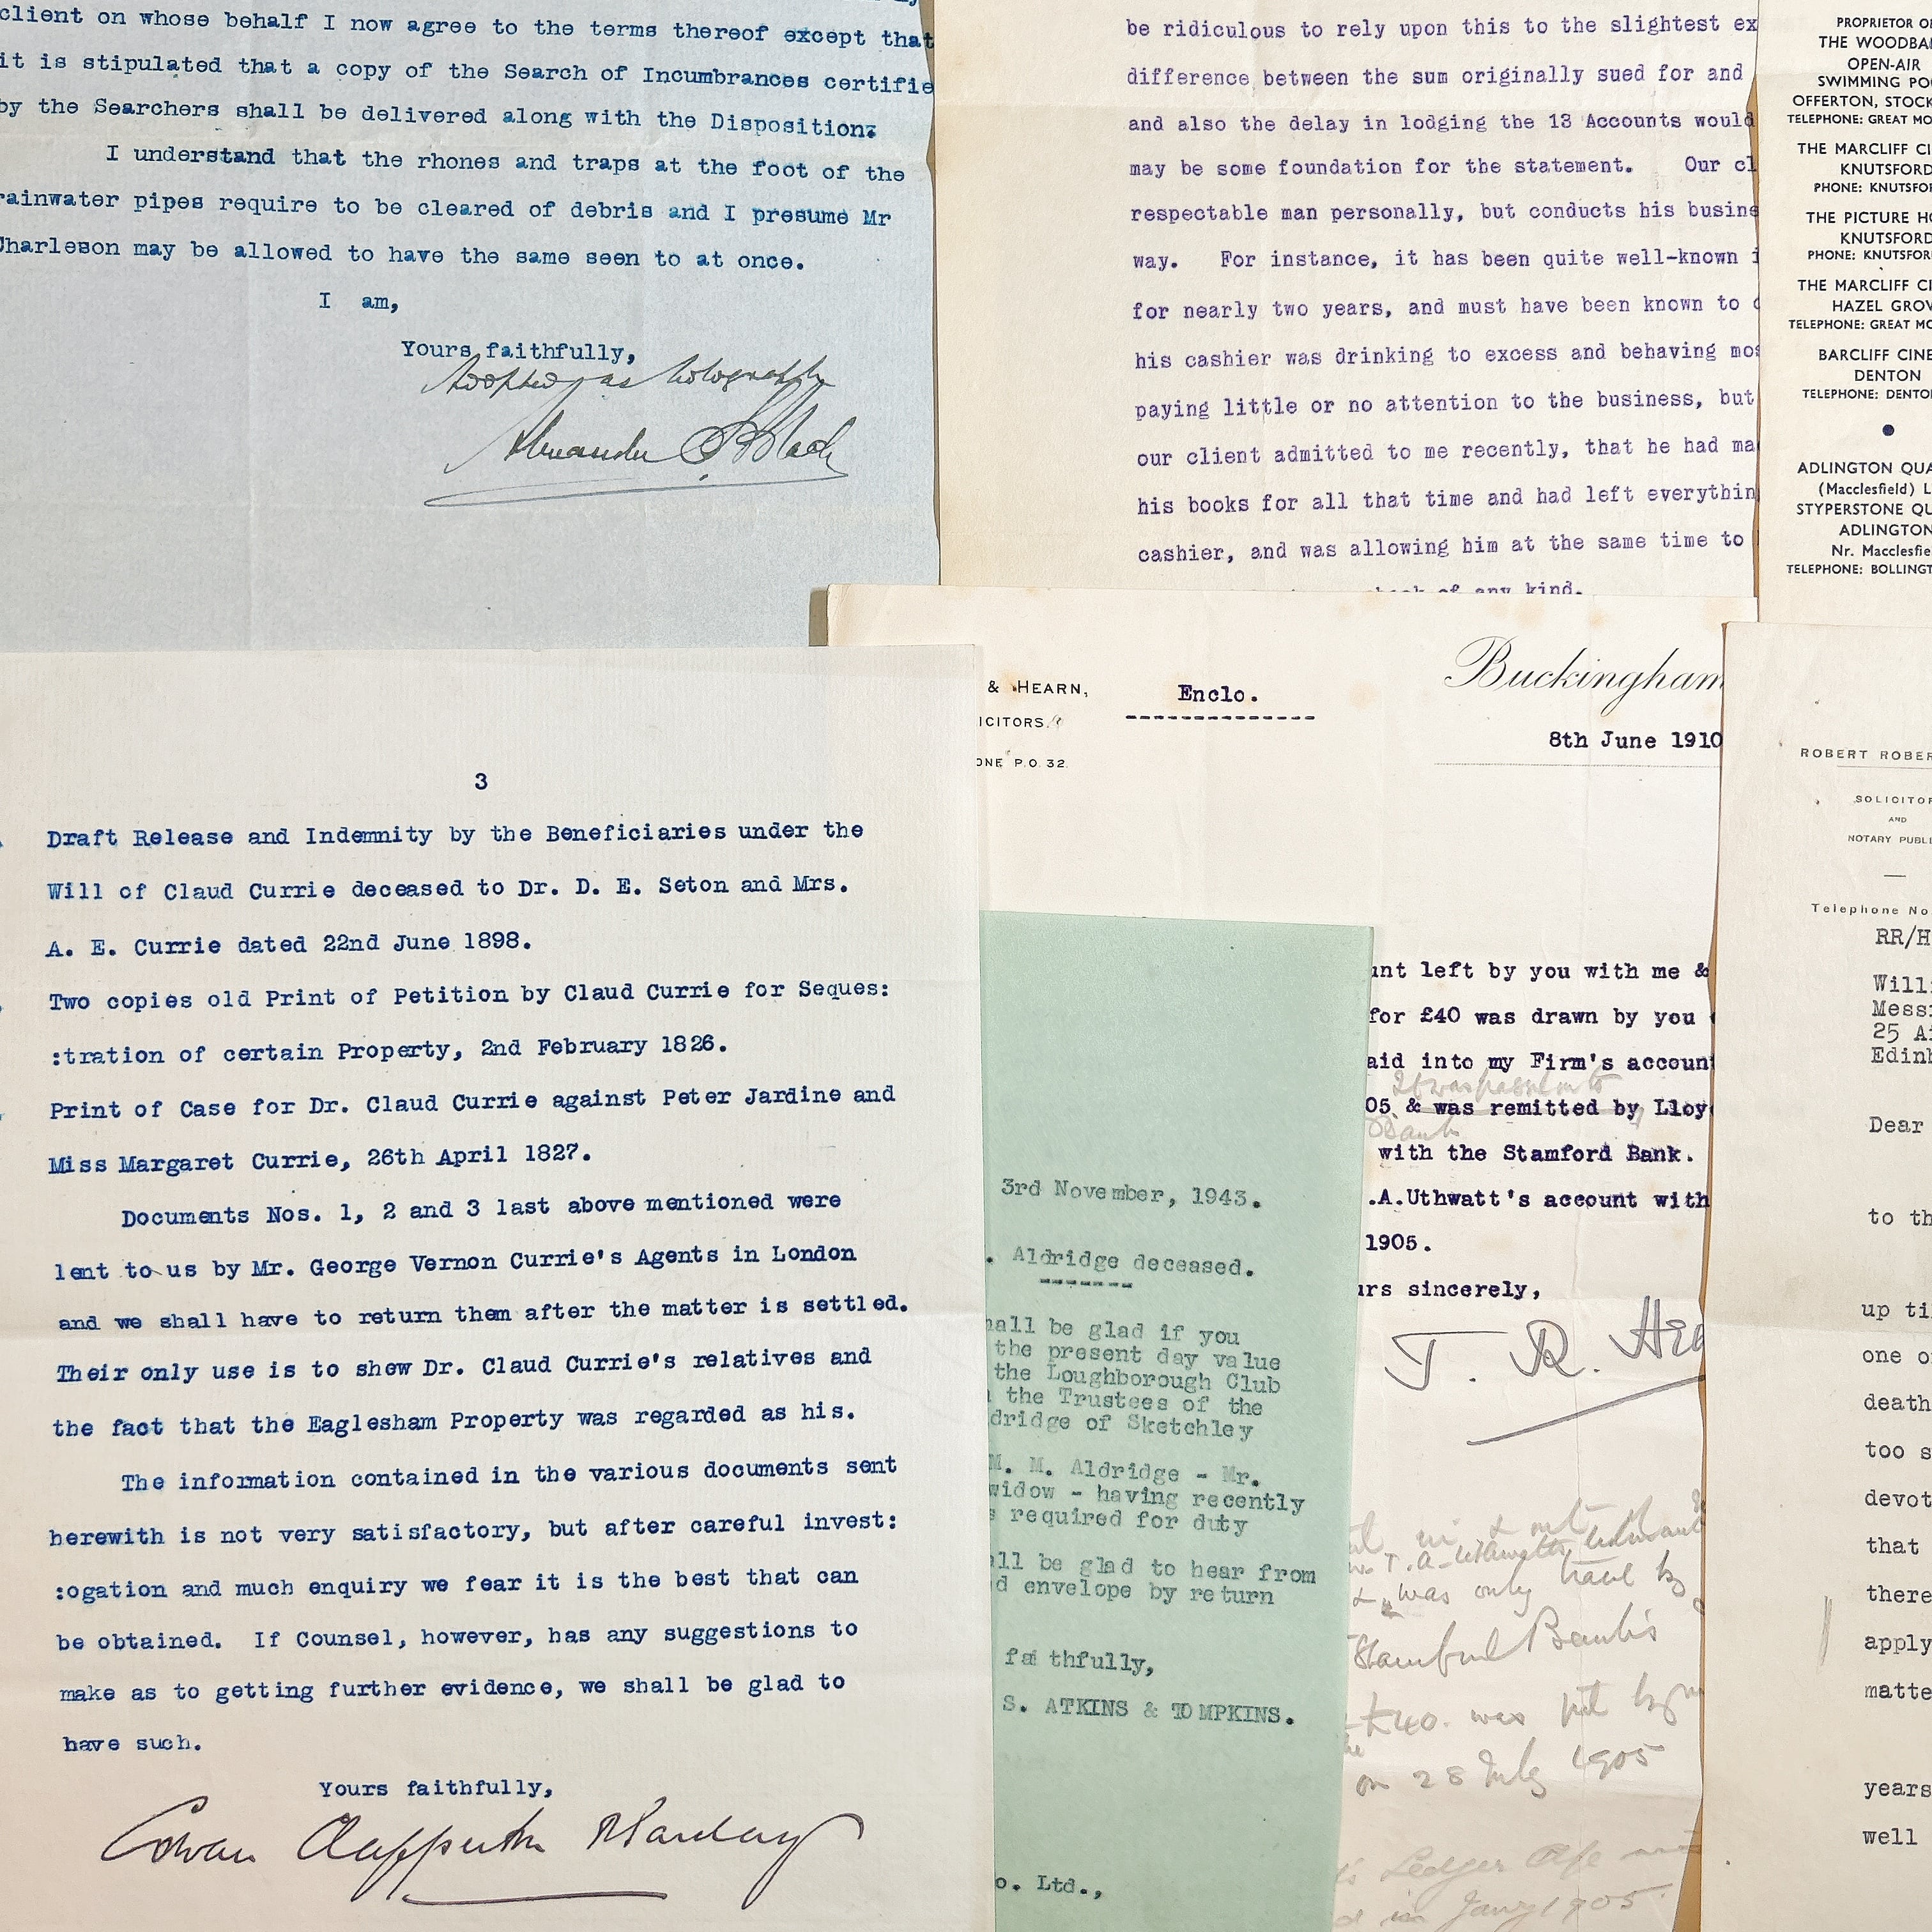 client on whose behalf I now agree to the terms thereof except that
it is stipulated that a copy of the Search of Incumbrances certifie
by the Searchers shall be delivered along with the Disposition:
I understand that the rhones and traps at the foot of the
rainwater pipes require to be cleared of debris and I presume Mr
Charleson may be allowed to have the same seen to at once.
I am,
Yours faithfully,
Adopted as holograph
Alexander
be ridiculous to rely upon this to the slightest ex
difference between the sum originally sued for and
and also the delay in lodging the 13 Accounts would
may be some foundation for the statement. Our cl
respectable man personally, but conducts his busine
way. For instance, it has been quite well-known i
for nearly two years, and must have been known to
his cashier was drinking to excess and behaving mos
paying little or no attention to the business, but
our client admitted to me recently, that he had ma
his books for all that time and had left everythin
cashier, and was allowing him at the same time to
of any kind.
PROPRIETOR OF
THE WOODBAN
OPEN-AIR
SWIMMING POO
OFFERTON, STOCK
TELEPHONE: GREAT MO
THE MARCLIFF CI
KNUTSFORD
PHONE: KNUTSFOR
THE PICTURE HO
KNUTSFORD
PHONE: KNUTSFOR
THE MARCLIFF CI
HAZEL GROV
TELEPHONE: GREAT MO
BARCLIFF CINE
DENTON
TELEPHONE: DENTO
ADLINGTON QUA
(Macclesfield) L
STYPERSTONE QU
ADLINGTON
Nr. Macclesfie
TELEPHONE: BOLLINGT
3
Draft Release and Indemnity by the Beneficiaries under the
Will of Claud Currie deceased to Dr. D. E. Seton and Mrs.
A. E. Currie dated 22nd June 1898.
Two copies old Print of Petition by Claud Currie for Seques:
:tration of certain Property, 2nd February 1826.
Print of Case for Dr. Claud Currie against Peter Jardine and
Miss Margaret Currie, 26th April 1827.
Documents Nos. 1, 2 and 3 last above mentioned were
lent to us by Mr. George Vernon Currie's Agents in London
and we shall have to return them after the matter is settled.
Their only use is to shew Dr. Claud Currie's relatives and
the fact that the Eaglesham Property was regarded as his.
The information contained in the various documents sent
herewith is not very satisfactory, but after careful invest:
:ogation and much enquiry we fear it is the best that can
be obtained. If Counsel, however, has any suggestions to
make as to getting further evidence, we shall be glad to
have such.
Yours faithfully,
Cowan Clapperton & Barclay
& HEARN,
ICITORS.
ONE P.O. 32.
Enclo.
Buckingham
8th June 1910
unt left by you with me &
for £40 was drawn by you
aid into my Firm's account
It was passed on to
05 & was remitted by Lloy
Bank
with the Stamford Bank.
.A.Uthwatt's account with
1905.
urs sincerely,
T. R.
was only
Stamford Bank's
£40. was
on 28 July 1905
Ledger
in Jany 1905
3rd November, 1943.
. Aldridge deceased.
hall be glad if you
the present day value
the Loughborough Club
the Trustees of the
dridge of Sketchley
M. M. Aldridge - Mr.
widow - having recently
s required for duty
all be glad to hear from
d envelope by return
faithfully,
S. ATKINS & TOMPKINS.
o. Ltd.,
ROBERT ROBER
SOLICITOR
AND
NOTARY PUBLI
Telephone No
RR/H
Willi
Messr
25 A
Edinb
Dear
to th
up ti
one o
death
too s
devot
that
there
apply
matte
years
well